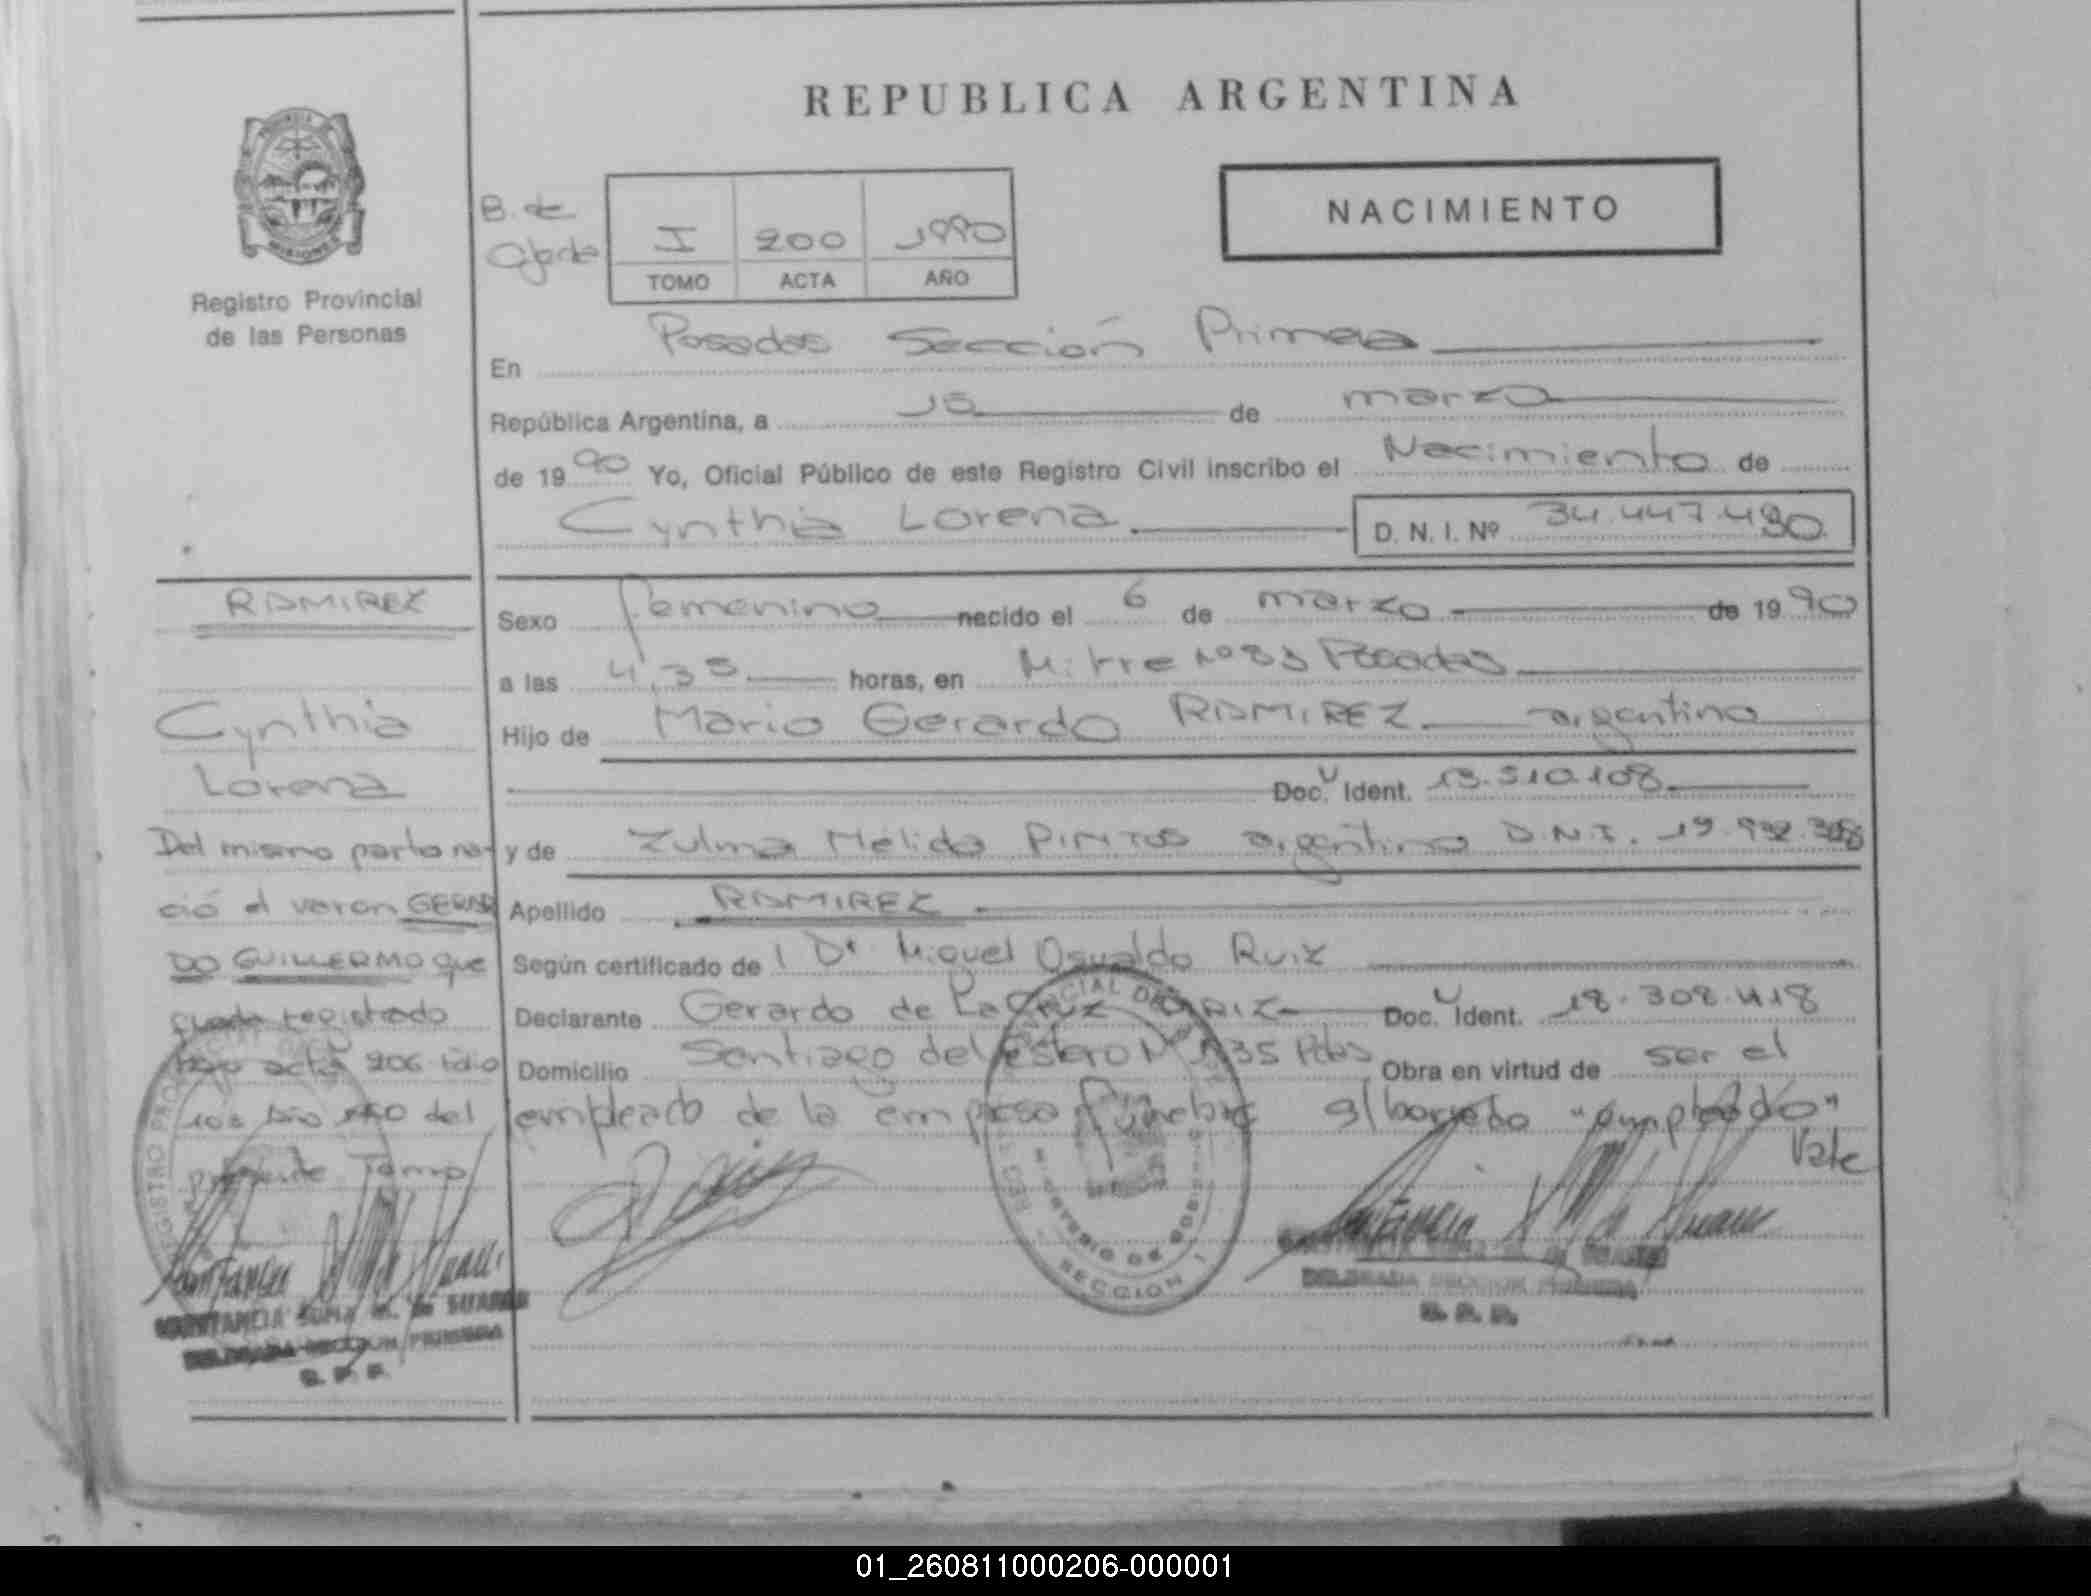 REPUBLICA ARGENTINA
NACIMIENTO
B. de
I 200 1990
TOMO ACTA AÑO
Registro Provincial
de las Personas
Posadas Sección Primera
En
República Argentina, a 15 de marzo
de 1990 Yo, Oficial Público de este Registro Civil inscribo el Nacimiento de
Cynthia Lorena D. N. I. Nº 34.447.490
RAMIREZ
Sexo femenino nacido el 6 de marzo de 1990
a las 4,35 horas, en Mitre Nº 83 Posadas
Cynthia
Lorena
Hijo de Mario Gerardo RAMIREZ argentino
Doc. Ident. 13.510.108
y de Zulma Mélida PINTOS argentina D.N.I.
Apellido RAMIREZ
Según certificado de l Dr Miguel Osvaldo Ruiz
Declarante Gerardo de La Cruz Doc. Ident. 18.302.418
Domicilio Santiago del Estero Nº Pdas Obra en virtud de ser el
empleado de la empresa fúnebre "empleado"
Vale
Del mismo parto na-
ció el varon GERAR
DO GUILLERMO que
queda registrado
bajo acta 206
año del
presente Tomo
SECCION 1
CONSTANCIA M. de SUAREZ
DELEGADA SECCION PRIMERA
R. P. P.
DELEGADA SECCION PRIMERA
R. P. P.
01_260811000206-000001